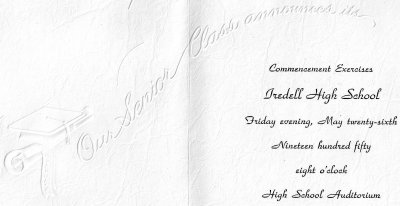 Our Senior Class announces its
Commencement Exercises
Iredell High School
Friday evening, May twenty-sixth
Nineteen hundred fifty
eight o'clock
High School Auditorium